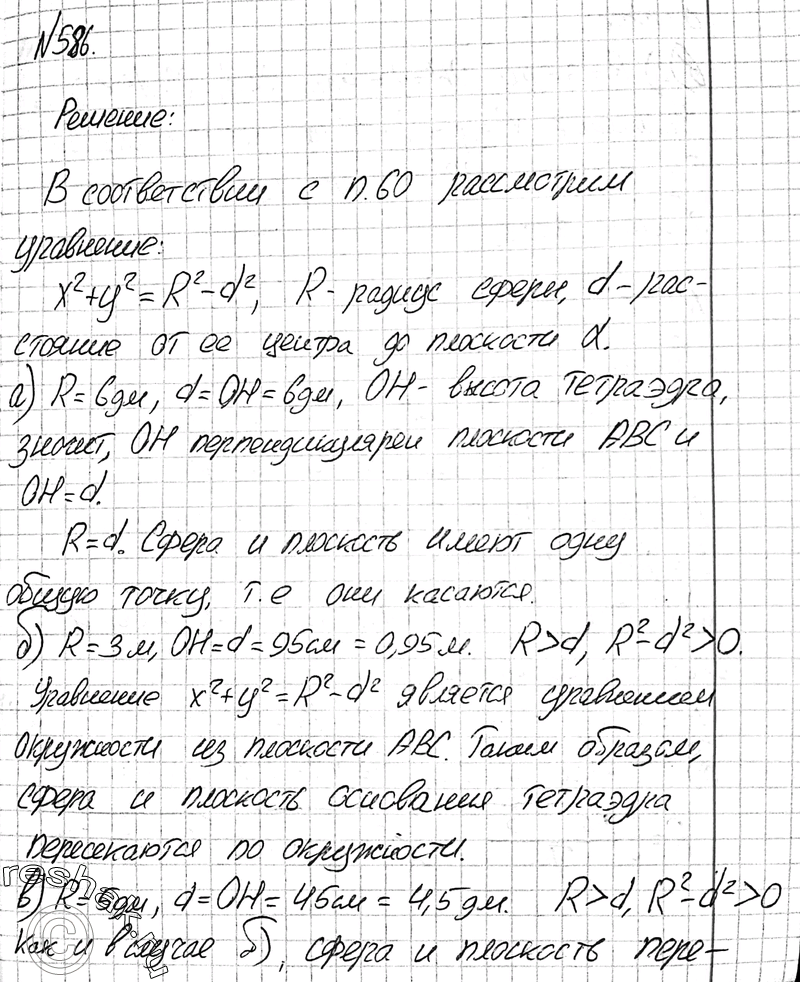 №586.
Решение:
В соответствии с п.60 рассмотрим
уравнение:
x²+y²=R²-d², R- радиус сферы, d-рас-
стояние от ее центра до плоскости α.
а) R=6дм, d=OH=6дм, OH- высота тетраэдра,
значит, OH перпендикулярен плоскости ABC и
OH=d.
R=d. Сфера и плоскость имеют одну
общую точку, т.е они касаются.
б) R=3м, OH=d=95см=0,95м. R>d, R²-d²>0.
Уравнение x²+y²=R²-d² является уравнением
окружности из плоскости ABC. Таким образом,
сфера и плоскость основания тетраэдра
пересекаются по окружности.
в) R=5дм, d=OH=45см=4,5дм. R>d, R²-d²>0
Как и в случае б), сфера и плоскость пере-
reshak.ru